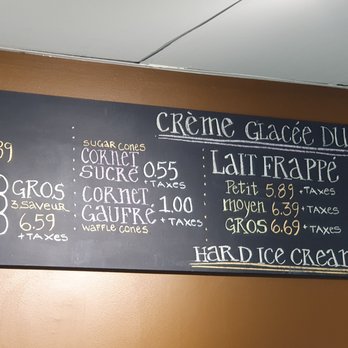 CRÈME GLACÉE DU
89
GROS
3 SAVEUR
6.59
+ TAXES
SUGAR CONES
CORNET
SUCRÉ 0.55
+ TAXES
CORNET
GAUFRÉ 1.00
+ TAXES
WAFFLE CONES
LAIT FRAPPÉ
Petit 5.89 + TAXES
moyen 6.39 + TAXES
GROS 6.69 + TAXES
HARD ICE CREAM